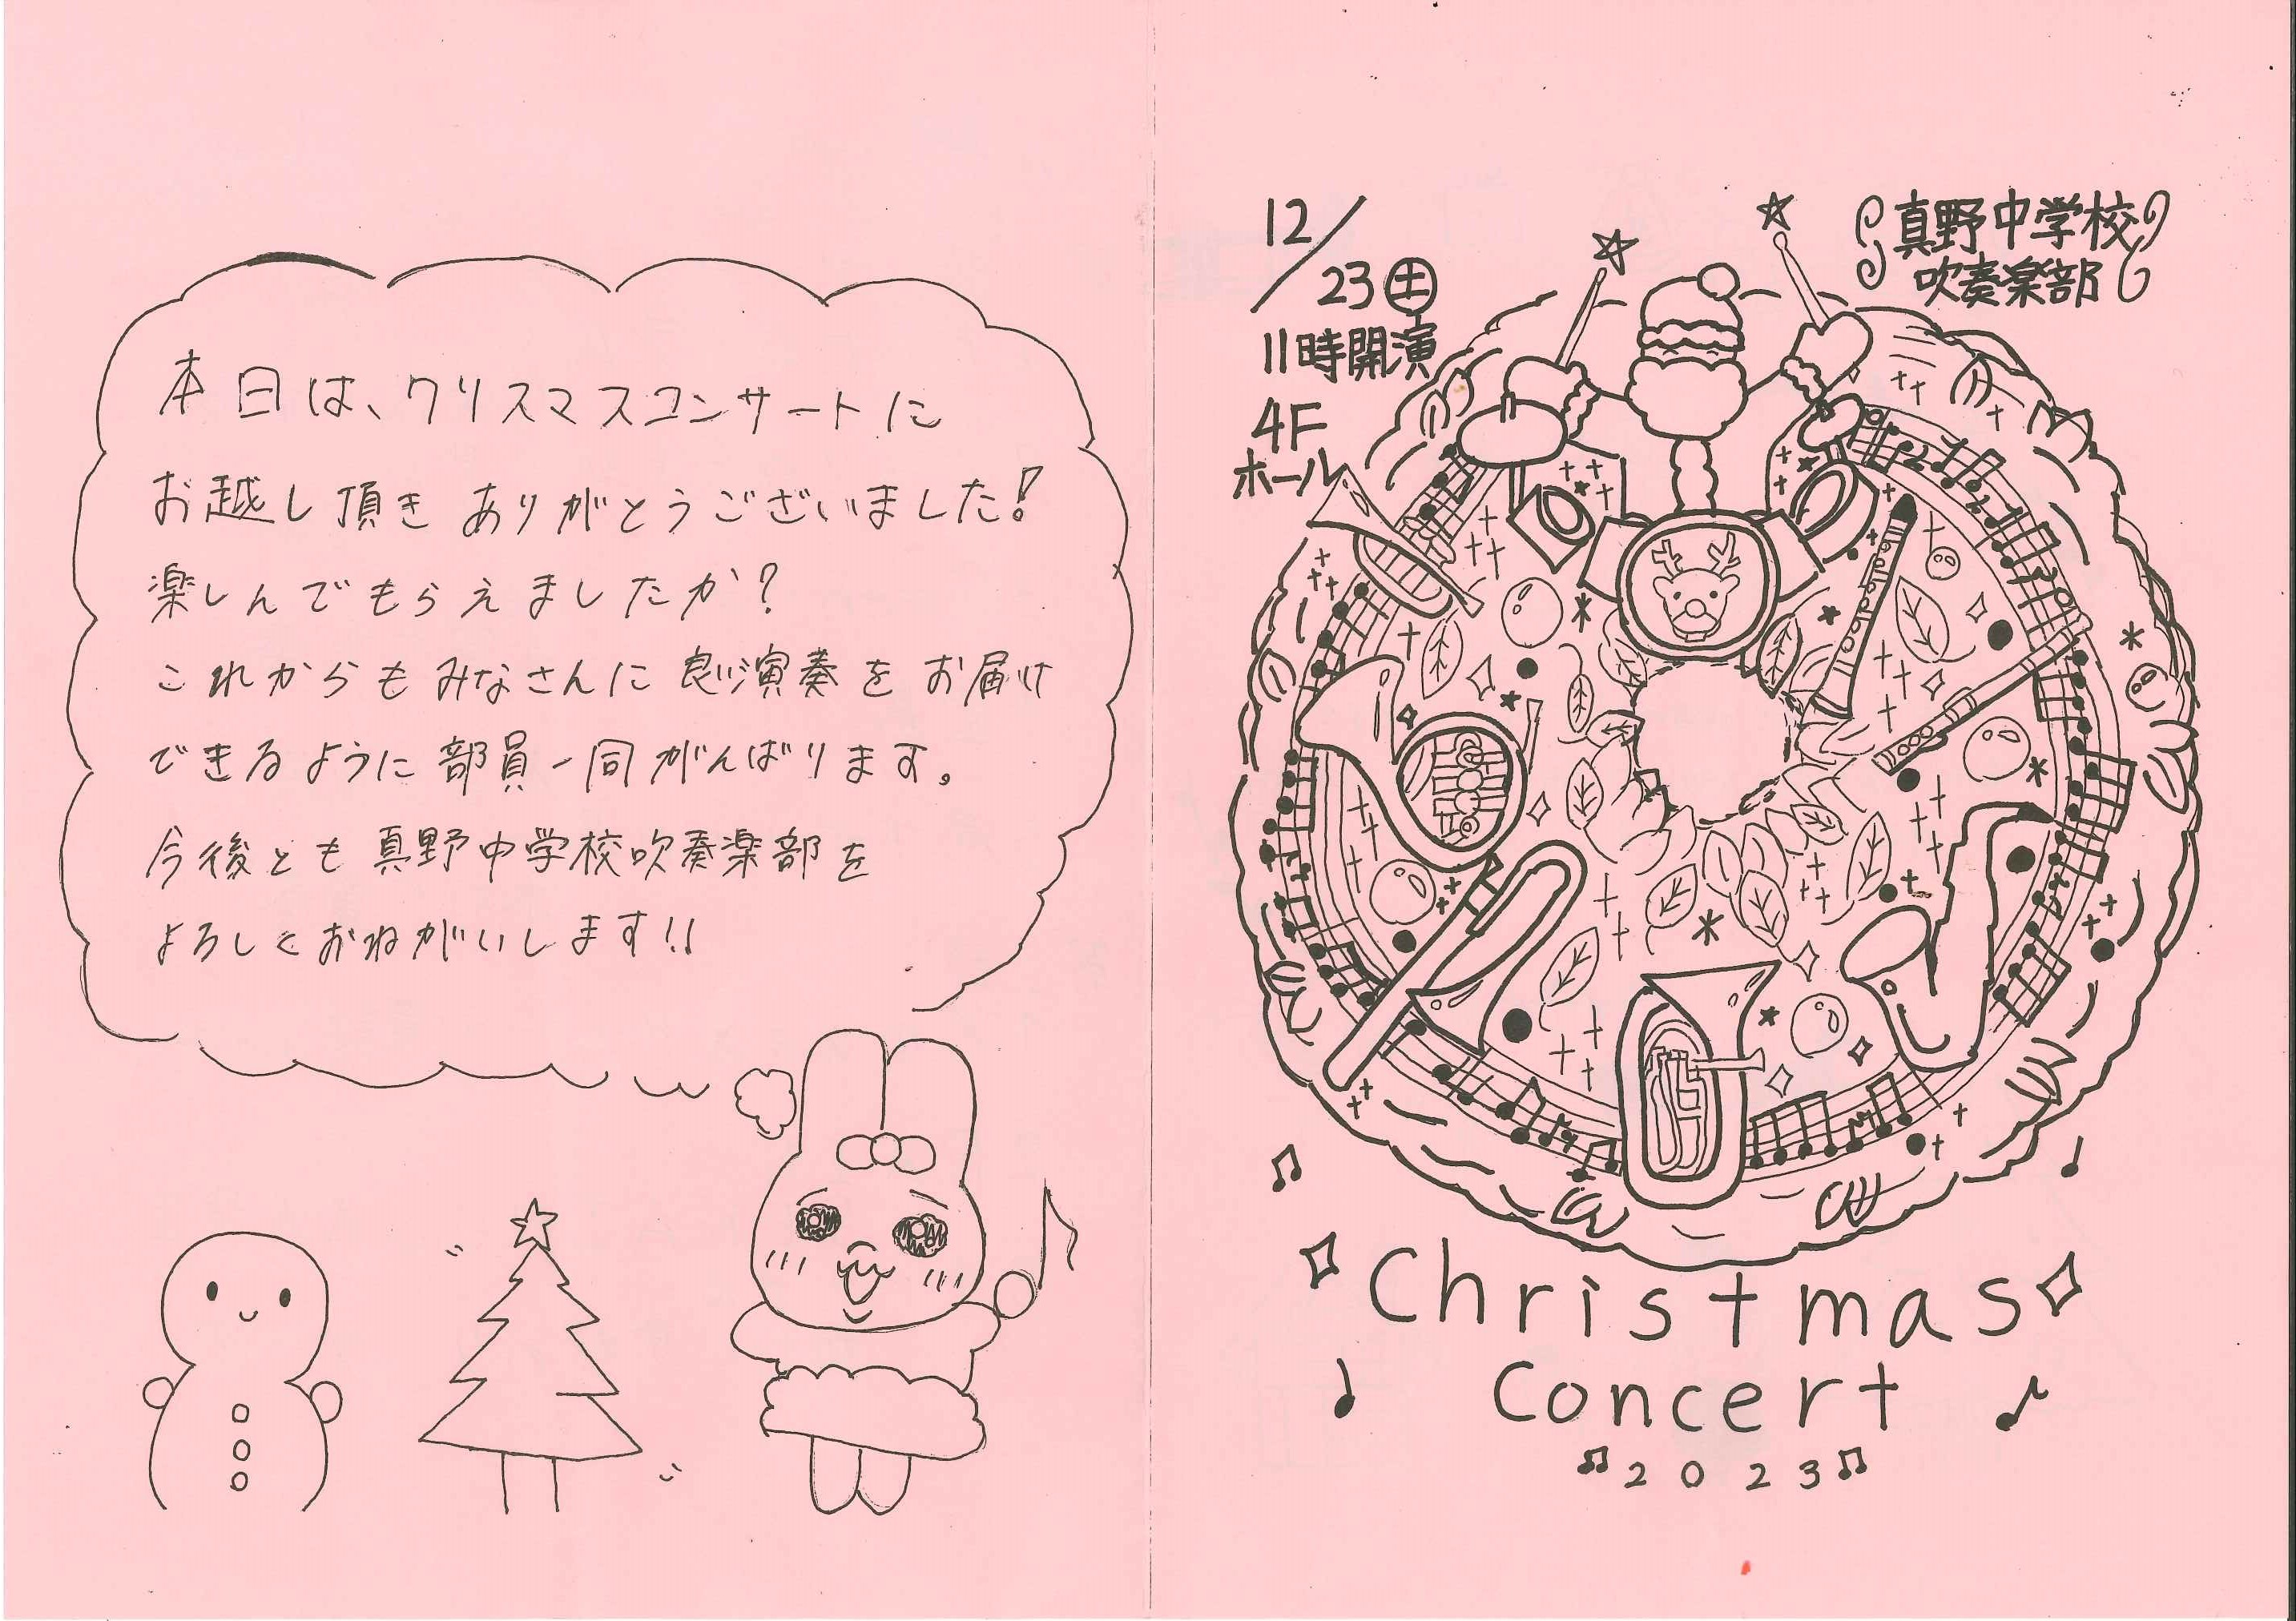 本日は、クリスマスコンサートに
お越し頂き ありがとうございました!
楽しんでもらえましたか?
これからもみなさんに良い演奏をお届け
できるように部員一同がんばります。
今後とも真野中学校吹奏楽部を
よろしくおねがいします!!
12/23㊏
11時開演
4F
ホール
真野中学校
吹奏楽部
Christmas
Concert
2023